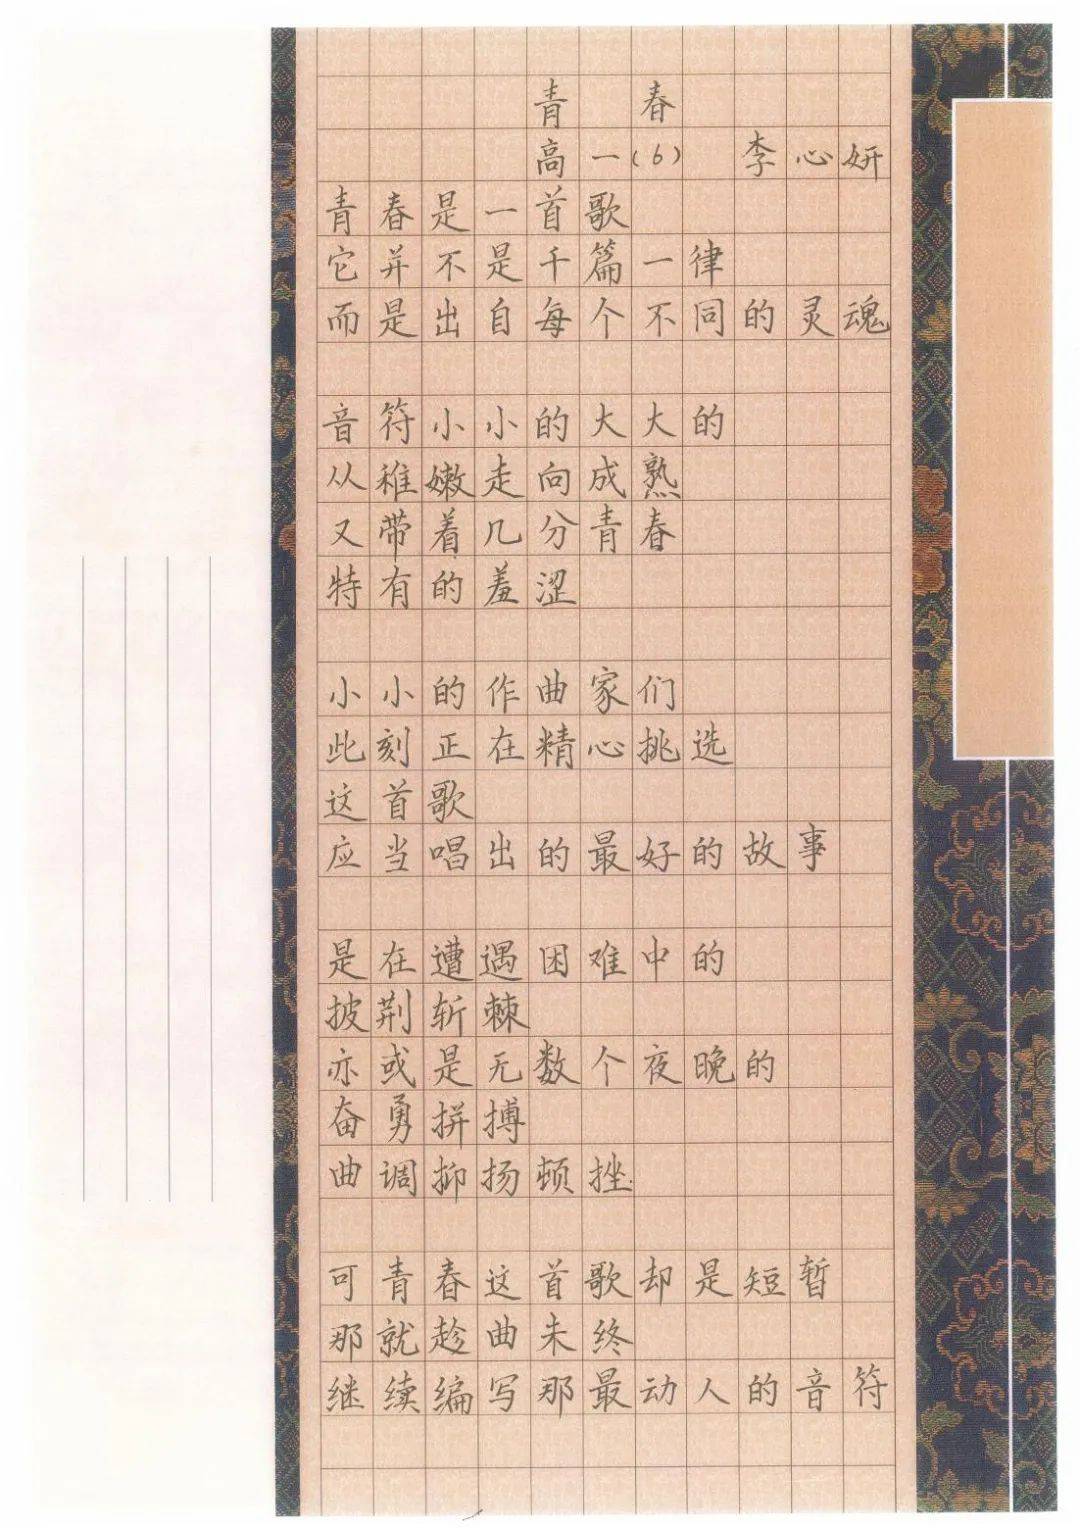 青 春
高一(6) 李心妍
青春是一首歌
它并不是千篇一律
而是出自每个不同的灵魂
音符小小的大大的
从稚嫩走向成熟
又带着几分青春
特有的羞涩
小小的作曲家们
此刻正在精心挑选
这首歌
应当唱出的最好的故事
是在遭遇困难中的
披荆斩棘
亦或是无数个夜晚的
奋勇拼搏
曲调抑扬顿挫
可青春这首歌却是短暂
那就趁曲未终
继续编写那最动人的音符